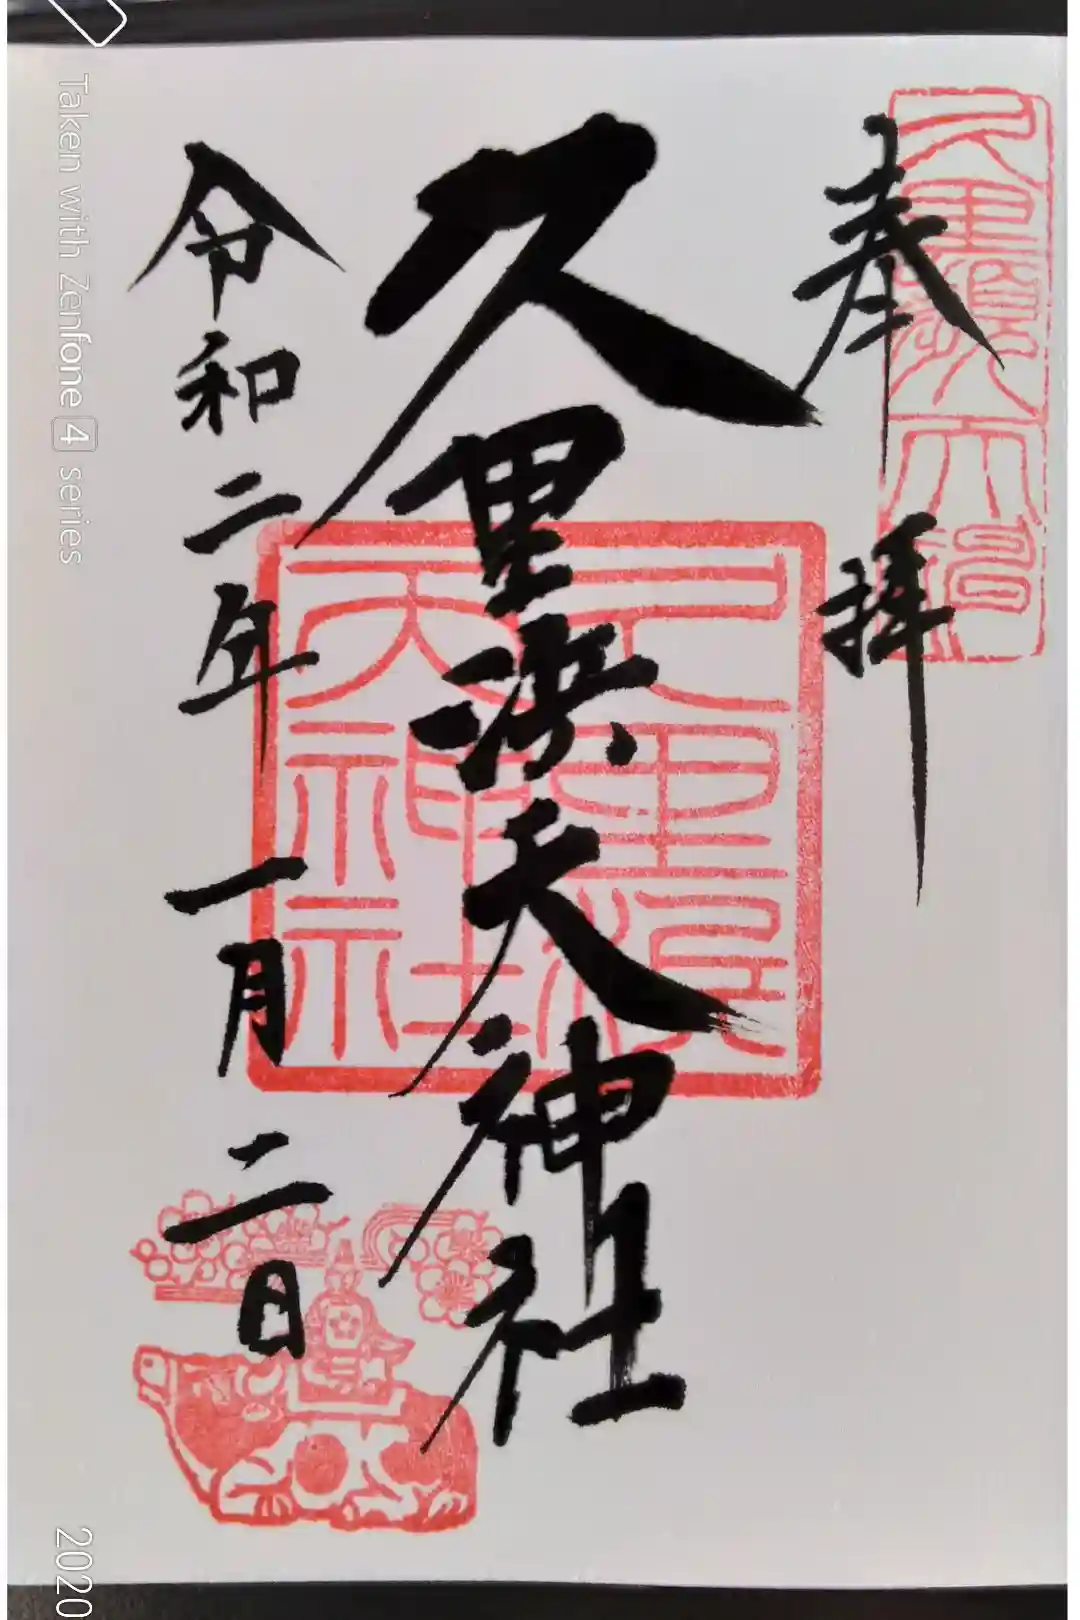 奉拝
久里浜天神社
令和二年一月二日
久里濱天神社
Taken with Zenfone 4 series
2020